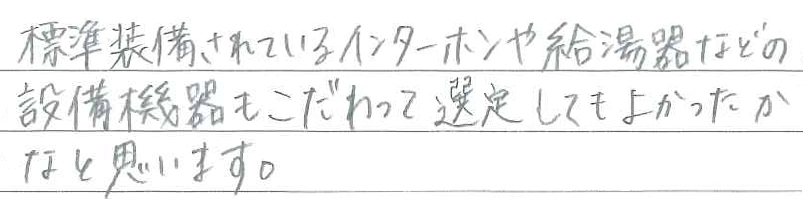 標準装備されているインターホンや給湯器などの
設備機器もこだわって選定してもよかったか
なと思います。